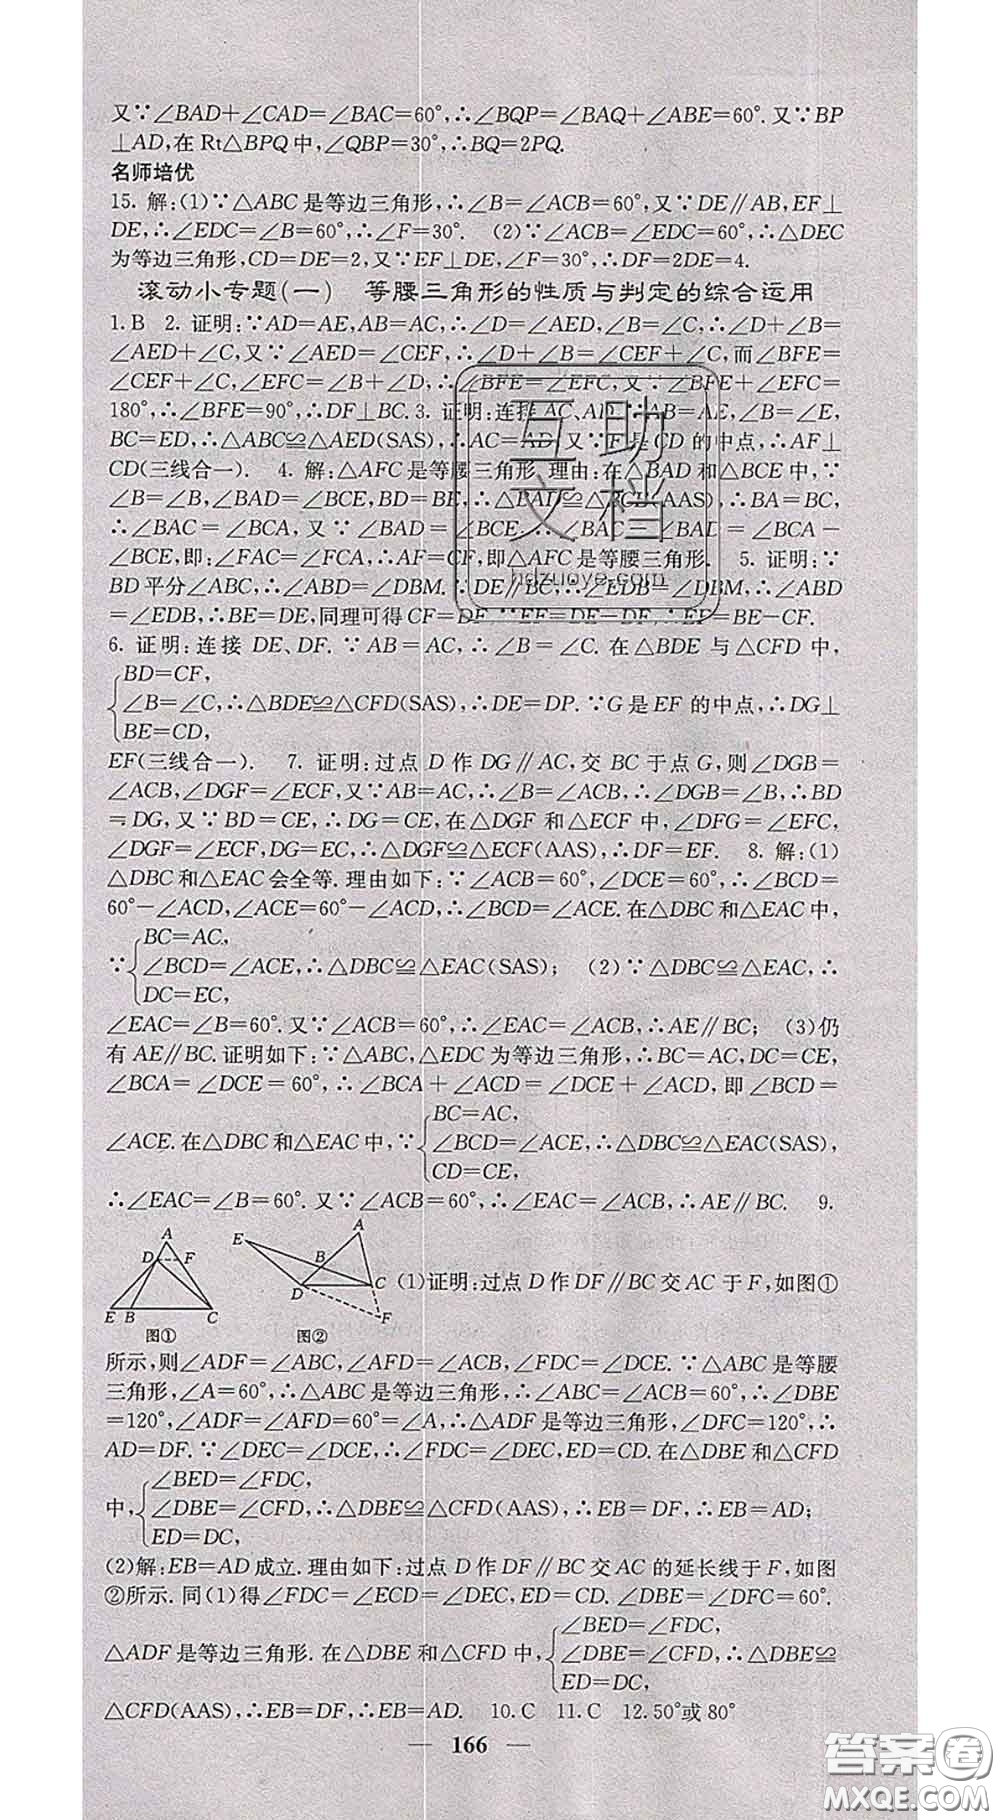 又∵∠BAD+∠CAD=∠BAC=60°,∴∠BQP=∠BAQ+∠ABE=60°.又∵BP
⊥AD,在Rt△BPQ中,∠QBP=30°,∴BQ=2PQ.
名师培优
15. 解:(1)∵△ABC是等边三角形,∴∠B=∠ACB=60°,又∵DE∥AB,EF⊥
DE,∴∠EDC=∠B=60°,∴∠F=30°. (2)∵∠ACB=∠EDC=60°,∴△DEC
为等边三角形,CD=DE=2,又∵EF⊥DE,∠F=30°,∴DF=2DE=4.
滚动小专题(一) 等腰三角形的性质与判定的综合运用
1.B 2. 证明:∵AD=AE,AB=AC,∴∠D=∠AED,∠B=∠C,∴∠D+∠B=
∠AED+∠C,又∵∠AED=∠CEF,∴∠D+∠B=∠CEF+∠C,而∠BFE=
∠CEF+∠C,∠EFC=∠B+∠D,∴∠BFE=∠EFC,又∵∠BFE+∠EFC=
180°,∴∠BFE=90°,∴DF⊥BC. 3. 证明:连接AC、AD.∵AB=AE,∠B=∠E,
BC=ED,∴△ABC≌△AED(SAS),∴AC=AD.又∵F是CD的中点,∴AF⊥
CD(三线合一). 4. 解:△AFC是等腰三角形.理由:在△BAD和△BCE中,∵
∠B=∠B,∠BAD=∠BCE,BD=BE,∴△BAD≌△BCE(AAS),∴BA=BC,
∴∠BAC=∠BCA,又∵∠BAD=∠BCE,∴∠BAC-∠BAD=∠BCA-
∠BCE,即:∠FAC=∠FCA,∴AF=CF,即△AFC是等腰三角形. 5. 证明:∵
BD平分∠ABC,∴∠ABD=∠DBM.∵DE∥BC,∴∠EDB=∠DBM,∴∠ABD
=∠EDB,∴BE=DE,同理可得CF=DF.∵EF=DE-DF,∴EF=BE-CF.
6. 证明:连接DE、DF.∵AB=AC,∴∠B=∠C.在△BDE与△CFD中,
BD=CF,
∠B=∠C,∴△BDE≌△CFD(SAS),∴DE=DP.∵G是EF的中点,∴DG⊥
BE=CD,
EF(三线合一). 7. 证明:过点D作DG∥AC,交BC于点G,则∠DGB=
∠ACB,∠DGF=∠ECF,又∵AB=AC,∴∠B=∠ACB,∴∠DGB=∠B,∴BD
=DG,又∵BD=CE,∴DG=CE,在△DGF和△ECF中,∠DFG=∠EFC,
∠DGF=∠ECF,DG=EC,∴△DGF≌△ECF(AAS),∴DF=EF. 8. 解:(1)
△DBC和△EAC会全等.理由如下:∵∠ACB=60°,∠DCE=60°,∴∠BCD=
60°-∠ACD,∠ACE=60°-∠ACD,∴∠BCD=∠ACE.在△DBC和△EAC中,
BC=AC,
∵ ∠BCD=∠ACE,∴△DBC≌△EAC(SAS); (2)∵△DBC≌△EAC,∴
DC=EC,
∠EAC=∠B=60°.又∵∠ACB=60°,∴∠EAC=∠ACB,∴AE∥BC; (3)仍
有AE∥BC.证明如下:∵△ABC,△EDC为等边三角形,∴BC=AC,DC=CE,
∠BCA=∠DCE=60°,∴∠BCA+∠ACD=∠DCE+∠ACD,即∠BCD=
BC=AC,
∠ACE.在△DBC和△EAC中,∵ ∠BCD=∠ACE,∴△DBC≌△EAC(SAS),
CD=CE,
∴∠EAC=∠B=60°.又∵∠ACB=60°,∴∠EAC=∠ACB,∴AE∥BC. 9.
A D F E B C 图①
E A B D C F 图②
(1)证明:过点D作DF∥BC交AC于F,如图①
所示,则∠ADF=∠ABC,∠AFD=∠ACB,∠FDC=∠DCE.∵△ABC是等腰
三角形,∠A=60°,∴△ABC是等边三角形,∴∠ABC=∠ACB=60°,∴∠DBE
=120°,∠ADF=∠AFD=60°=∠A,∴△ADF是等边三角形,∠DFC=120°,∴
AD=DF.∵∠DEC=∠DCE,∴∠FDC=∠DEC,ED=CD.在△DBE和△CFD
∠BED=∠FDC,
中, ∠DBE=∠CFD,∴△DBE≌△CFD(AAS),∴EB=DF,∴EB=AD;
ED=DC,
(2)解:EB=AD成立.理由如下:过点D作DF∥BC交AC的延长线于F,如图
②所示.同(1)得∠FDC=∠ECD=∠DEC,ED=CD.∠DBE=∠DFC=60°.
∠BED=∠FDC,
△ADF是等边三角形.在△DBE和△CFD中, ∠DBE=∠CFD,∴△DBE≌
ED=DC,
△CFD(AAS),∴EB=DF,∴EB=AD. 10.C 11.C 12.50°或80°
— 166 —
互助
文档
hdzuoye.com
答案圈
MXQE.COM